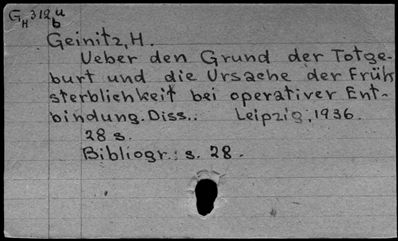 G_H 312 u/b
Geinitz, H.
Ueber den Grund der Totge-
burt und die Ursache der Früh
sterblichkeit bei operativer Ent-
bindung. Diss.. Leipzig, 1936.
28 s.
Bibliogr.: s. 28.